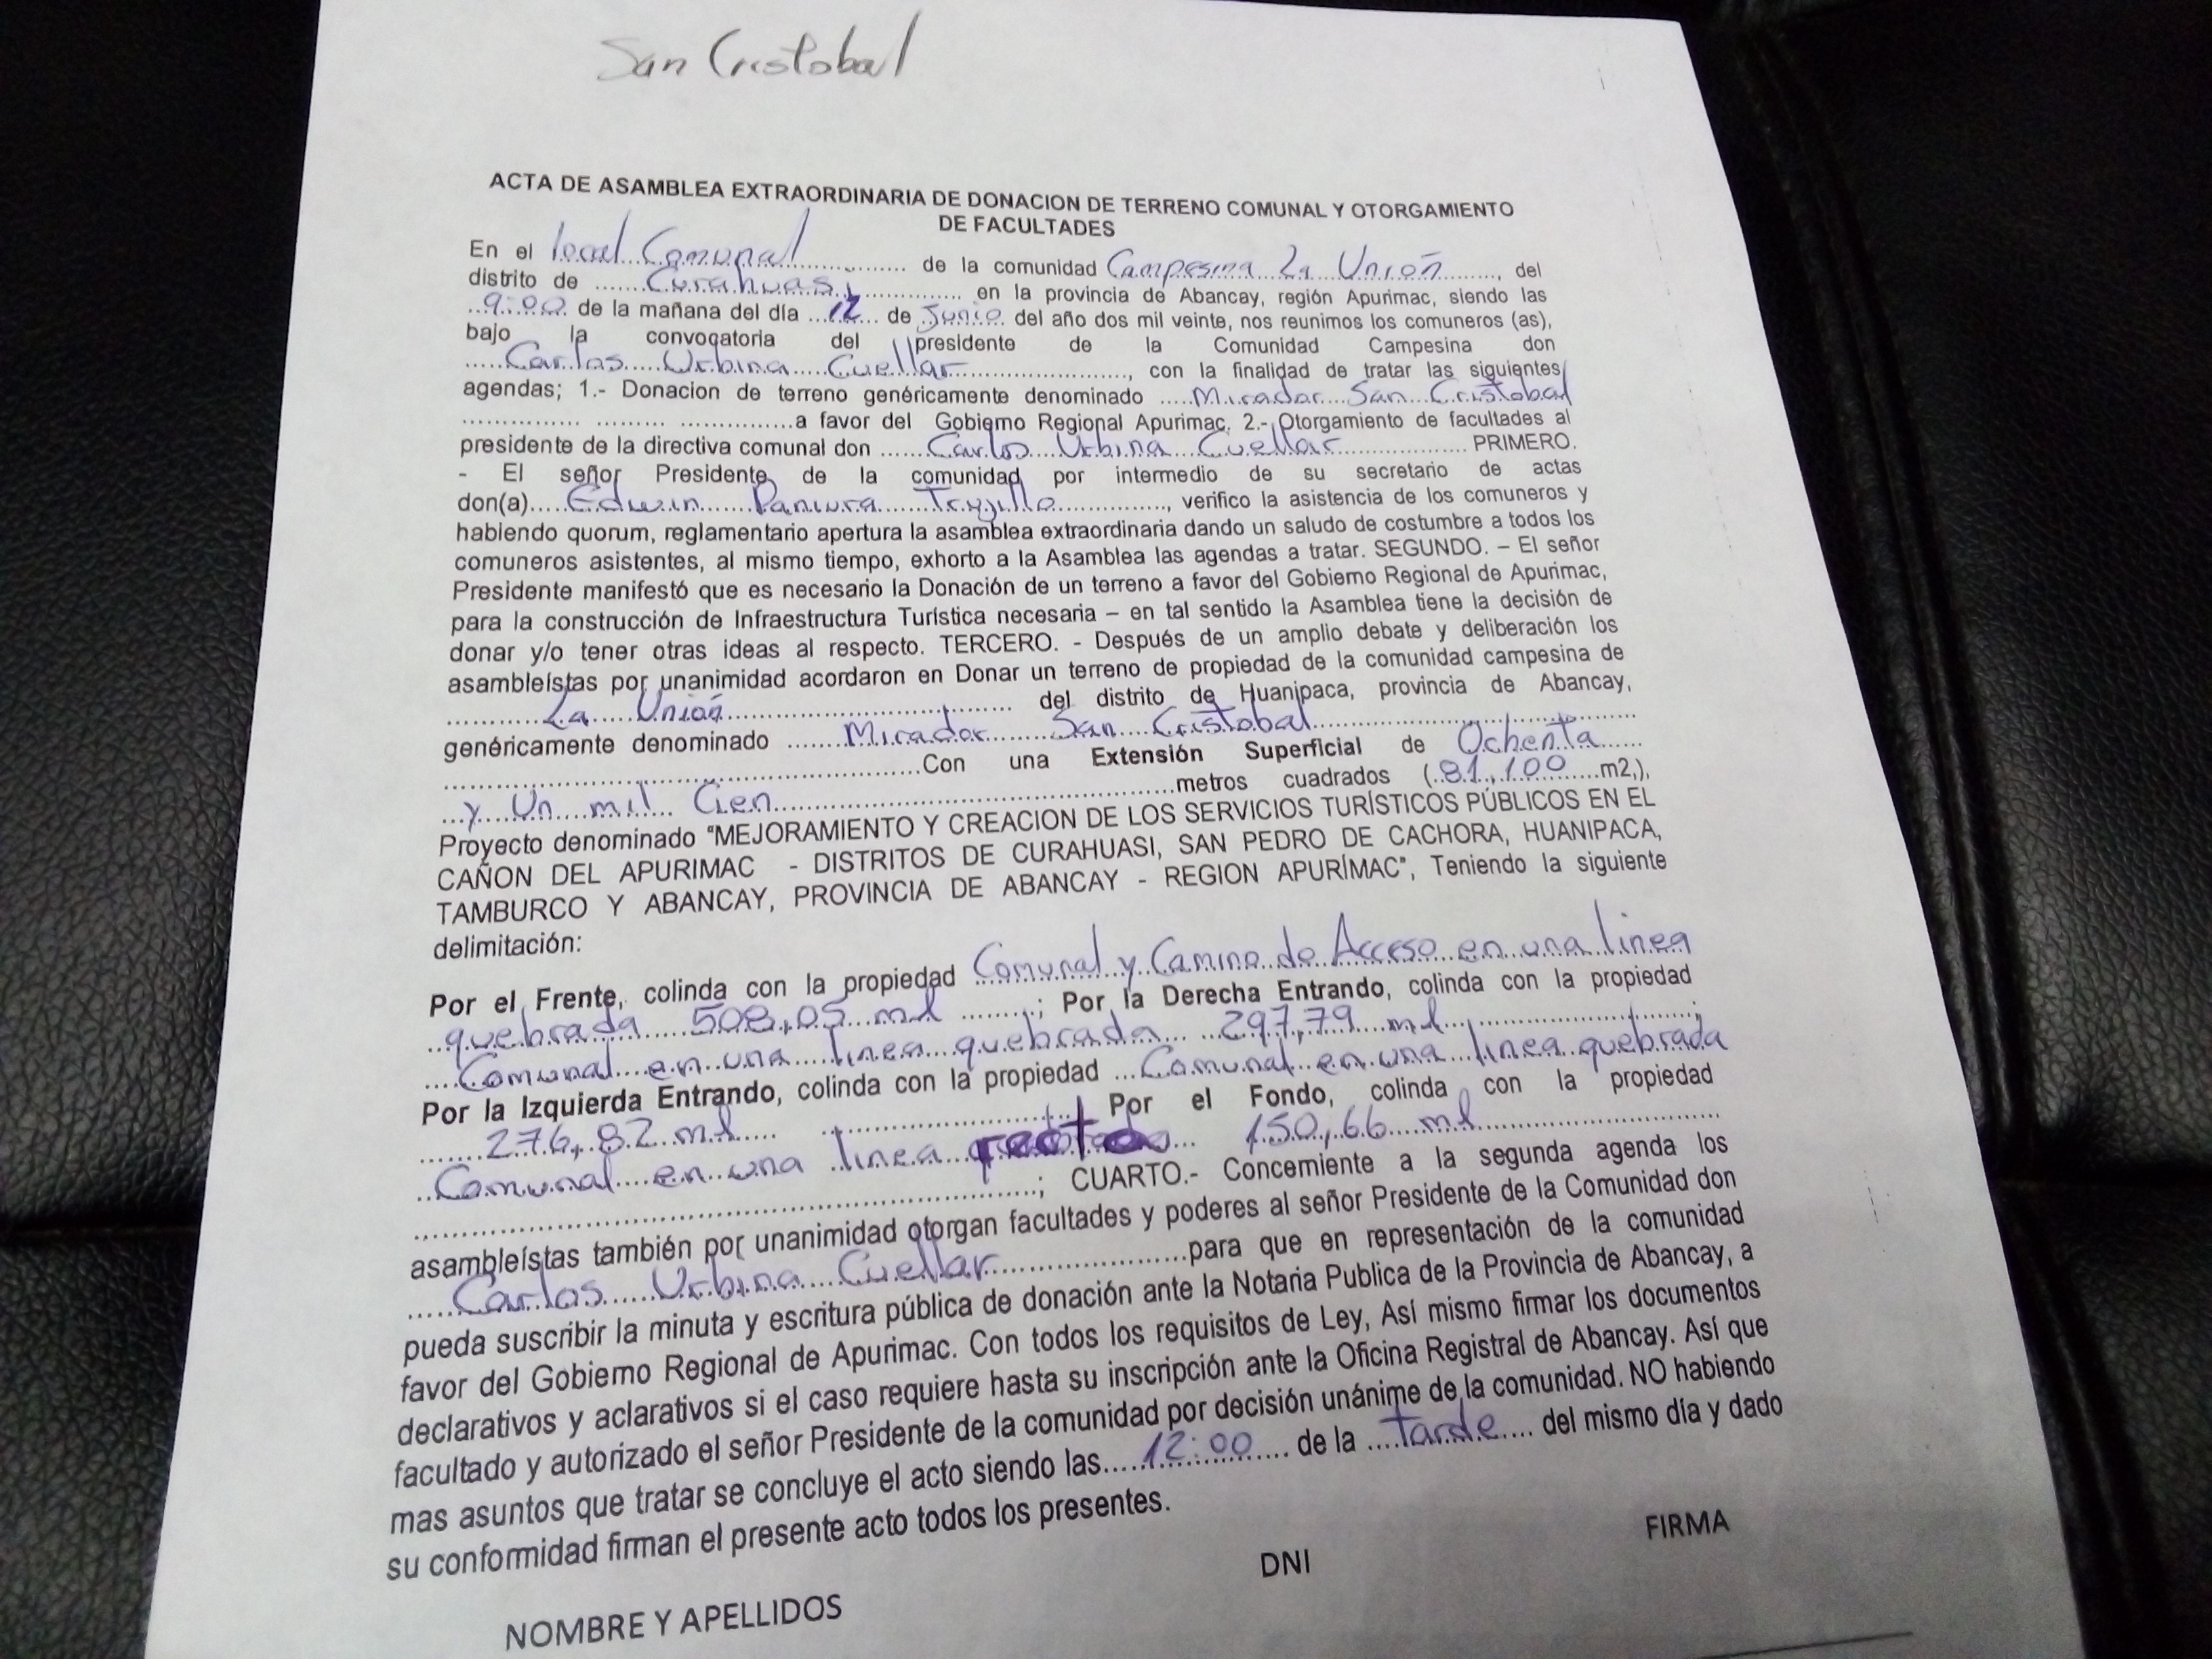 San Cristobal
ACTA DE ASAMBLEA EXTRAORDINARIA DE DONACION DE TERRENO COMUNAL Y OTORGAMIENTO
DE FACULTADES
En el local Comunal .................... de la comunidad Campesina La Unión ........, del
distrito de ...... Curahuasi, .............. en la provincia de Abancay, región Apurimac, siendo las
..9:00. de la mañana del día ...12... de Junio. del año dos mil veinte, nos reunimos los comuneros (as),
bajo la convocatoria del presidente de la Comunidad Campesina don
..... Carlos Urbina Cuellar ......................, con la finalidad de tratar las siguientes
agendas; 1.- Donacion de terreno genéricamente denominado ..... Mirador San Cristobal
............... ......... ...............a favor del Gobierno Regional Apurimac. 2.- Otorgamiento de facultades al
presidente de la directiva comunal don ...... Carlos Urbina Cuellar ................. PRIMERO.
- El señor Presidente de la comunidad por intermedio de su secretario de actas
don(a).... Edwin Paniura Trujillo ..............., verifico la asistencia de los comuneros y
habiendo quorum, reglamentario apertura la asamblea extraordinaria dando un saludo de costumbre a todos los
comuneros asistentes, al mismo tiempo, exhorto a la Asamblea las agendas a tratar. SEGUNDO. – El señor
Presidente manifestó que es necesario la Donación de un terreno a favor del Gobierno Regional de Apurimac,
para la construcción de Infraestructura Turística necesaria – en tal sentido la Asamblea tiene la decisión de
donar y/o tener otras ideas al respecto. TERCERO. - Después de un amplio debate y deliberación los
asambleístas por unanimidad acordaron en Donar un terreno de propiedad de la comunidad campesina de
............ La Unión .............................. del distrito de Huanipaca, provincia de Abancay,
genéricamente denominado ....... Mirador San Cristobal ..................................
..............................................Con una Extensión Superficial de Ochenta ......
... y Un mil Cien ..............................................metros cuadrados (.81,100 ....m2,),
Proyecto denominado "MEJORAMIENTO Y CREACION DE LOS SERVICIOS TURÍSTICOS PÚBLICOS EN EL
CAÑON DEL APURIMAC - DISTRITOS DE CURAHUASI, SAN PEDRO DE CACHORA, HUANIPACA,
TAMBURCO Y ABANCAY, PROVINCIA DE ABANCAY - REGION APURÍMAC", Teniendo la siguiente
delimitación:
Por el Frente, colinda con la propiedad Comunal y Camino de Acceso en una linea
.. quebrada 508,05 ml ........; Por la Derecha Entrando, colinda con la propiedad
.... Comunal en una linea quebrada 297,79 ml ......................;
Por la Izquierda Entrando, colinda con la propiedad ... Comunal en una linea quebrada
....... 276,82 ml .... ......................... Por el Fondo, colinda con la propiedad
.. Comunal en una linea recta ... 150,66 ml .........................
.........................................................; CUARTO.- Concerniente a la segunda agenda los
asambleístas también por unanimidad otorgan facultades y poderes al señor Presidente de la Comunidad don
..... Carlos Urbina Cuellar ......................para que en representación de la comunidad
pueda suscribir la minuta y escritura pública de donación ante la Notaria Publica de la Provincia de Abancay, a
favor del Gobierno Regional de Apurimac. Con todos los requisitos de Ley, Así mismo firmar los documentos
declarativos y aclarativos si el caso requiere hasta su inscripción ante la Oficina Registral de Abancay. Así que
facultado y autorizado el señor Presidente de la comunidad por decisión unánime de la comunidad. NO habiendo
mas asuntos que tratar se concluye el acto siendo las..... 12:00 .... de la .... tarde .... del mismo día y dado
su conformidad firman el presente acto todos los presentes.
NOMBRE Y APELLIDOS DNI FIRMA